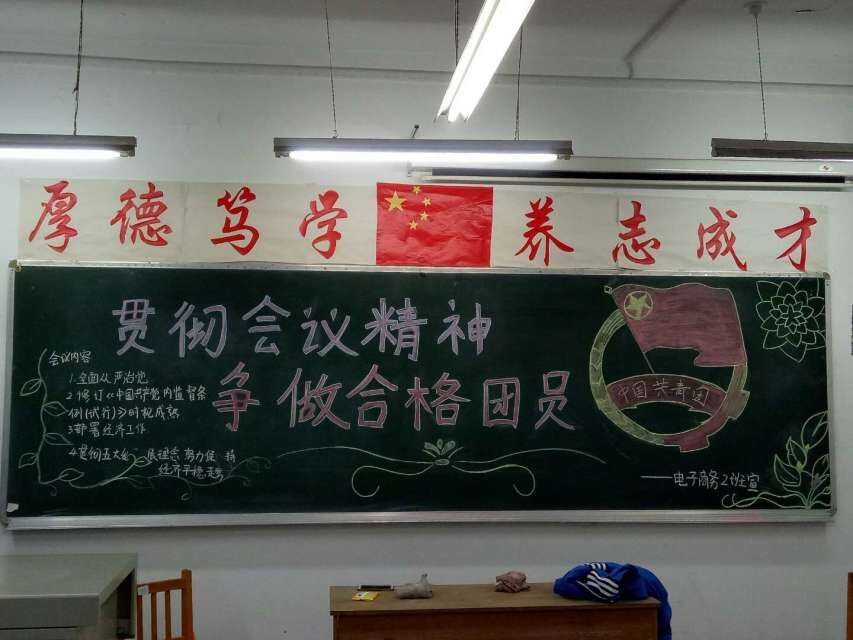 厚德笃学 养志成才
贯彻会议精神
争做合格团员
会议内容
1.全面从严治党
2.修订《中国共产党内监督条
例(试行)》时机成熟
3.部署经济工作
4.贯彻五大 展理念 努力保 持
经济平稳走势
中国共青团
——电子商务2班宣